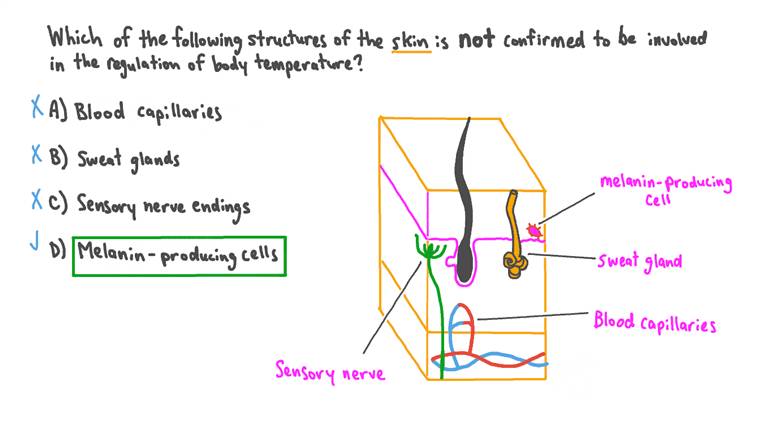 Which of the following structures of the skin is not confirmed to be involved
in the regulation of body temperature?
X A) Blood capillaries
X B) Sweat glands
X C) Sensory nerve endings
✓ D) Melanin-producing cells
melanin-producing
cell
sweat gland
Blood capillaries
Sensory nerve